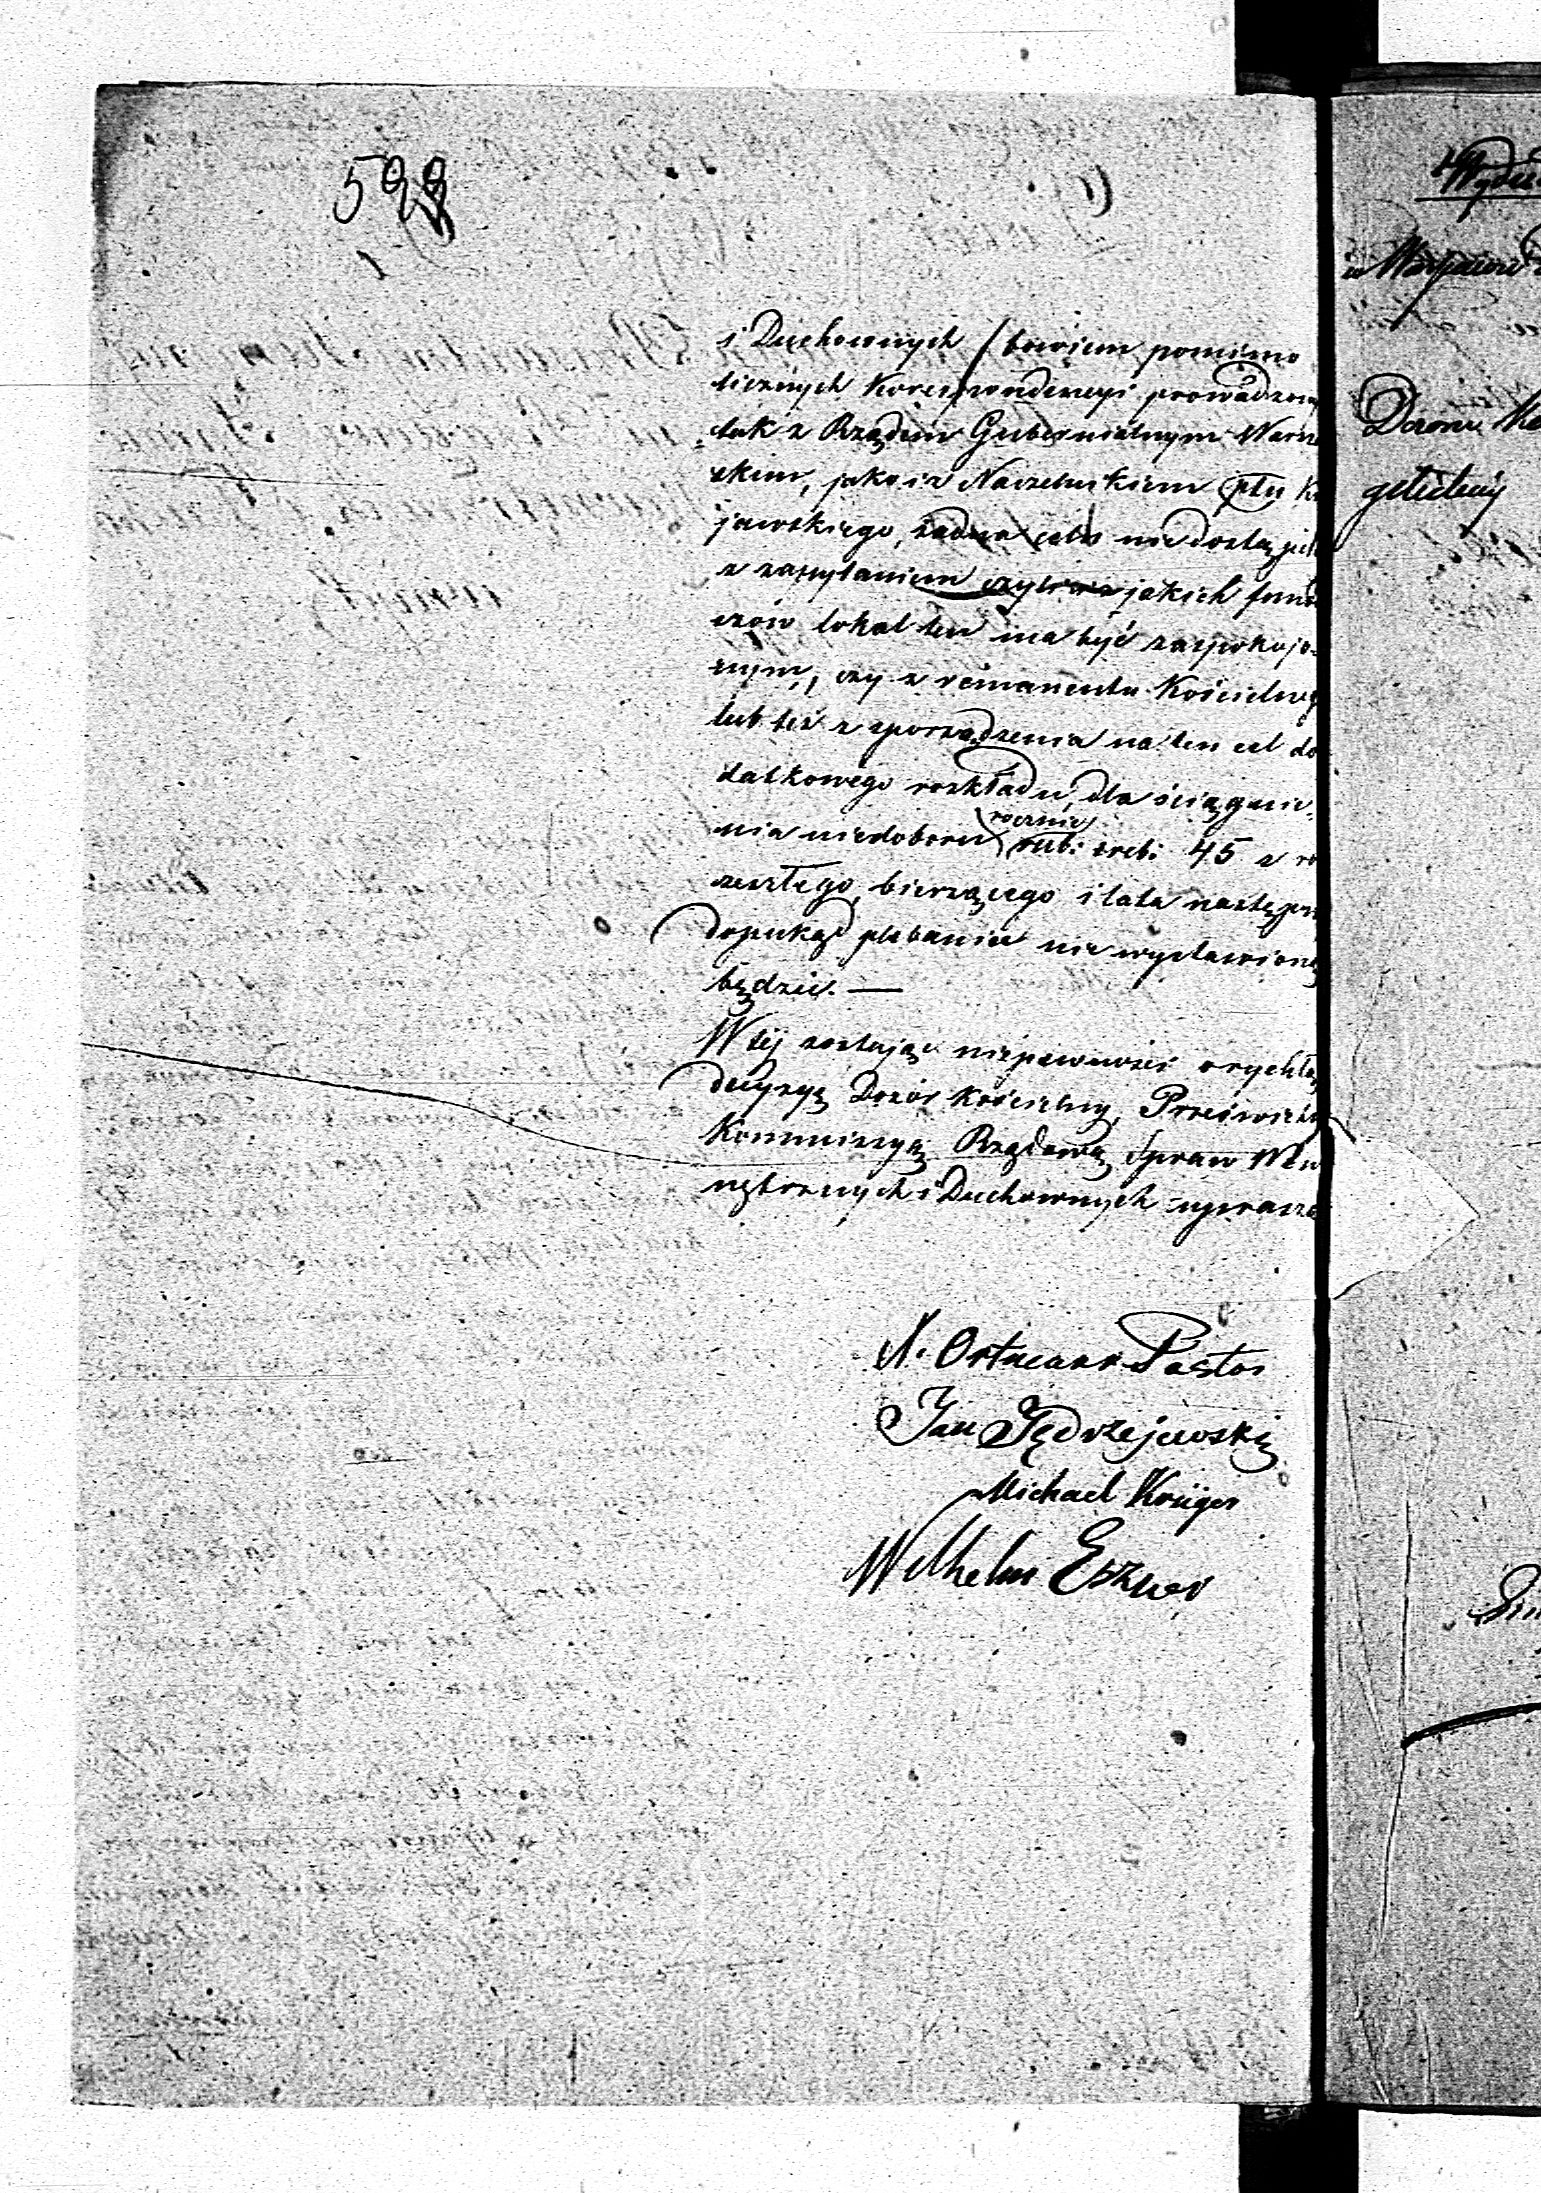 i Duchownych / bowiem pomimo
licznych Korespondencyi prowadzony
tak z Rządem Gubernialnym Warsz
skim, jako i z Naczelnikiem Ptu Ku
jawskiego, żadna nie dostąpił
z zapytaniem czyli z jakich fundu
szów lokal ten ma być zaspokojo-
nym, czy z remanentu Kościelneg
lub też z sporządzenia na ten cel do
datkowego rozkładu, dla ściągnie-
nia niedoboru rocznie rub: sreb: 45 z ro
zeszłego, bieżącego i lata następn
dopukąd plebania nie wystawioną
będzie. —
W tej zostając niepewności o rychłą
decyzyą Dozór Kościelny, Prześwietn
Kommissyą Rządową Spraw Wew
nętrznych i Duchownych uprasza
Ortmann Pastor
Jan Jędrzejewski
Michael Krüger
Wilhelm
w Warszawie
Dozoru
gelickiej